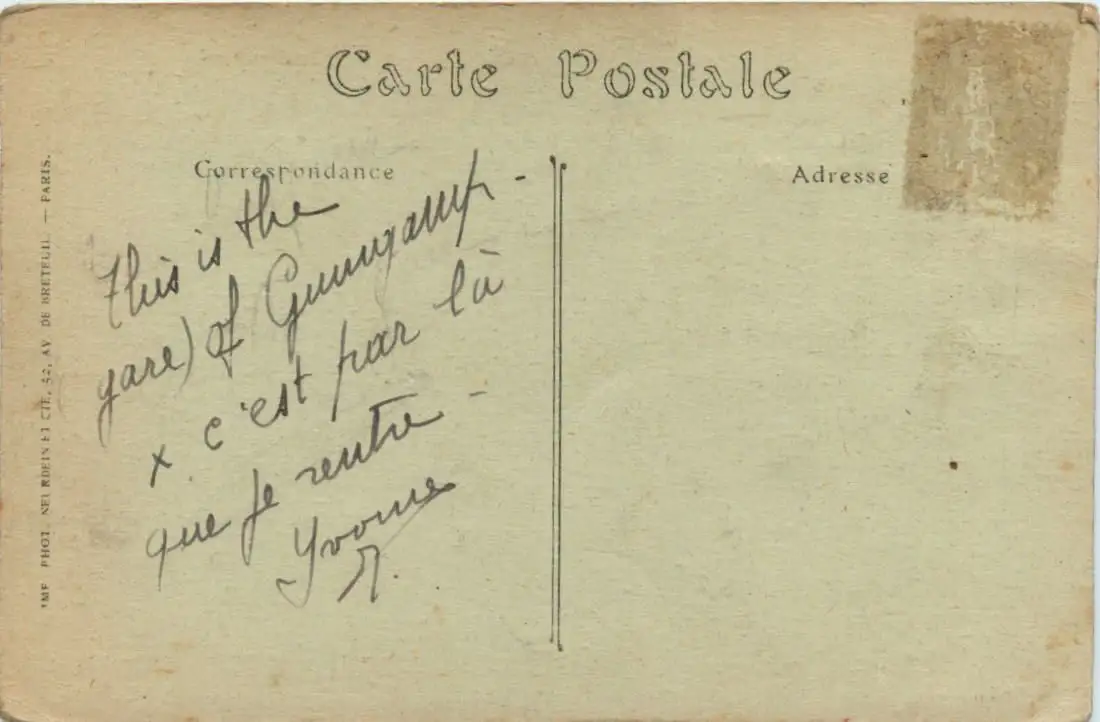 Carte Postale
Correspondance
Adresse
This is the
gare) of Guingamp -
x c'est par là
que je rentre -
Yvonne
IMP. PHOT. NEURDEIN ET CIE, 52, AV. DE BRETEUIL. — PARIS.